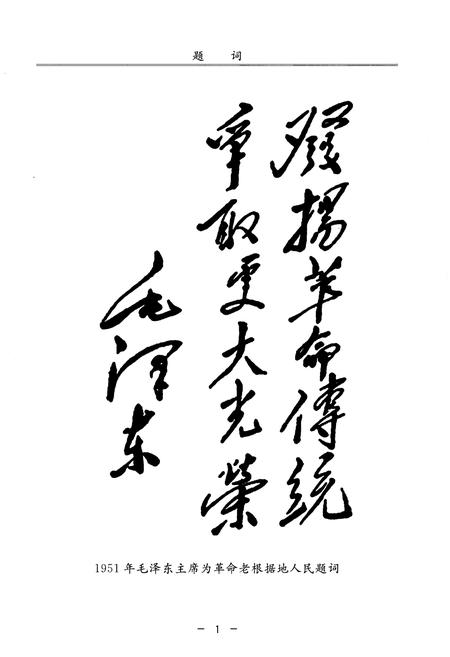 题 词
發揚革命傳統
争取更大光榮
毛泽东
1951年毛泽东主席为革命老根据地人民题词
- 1 -